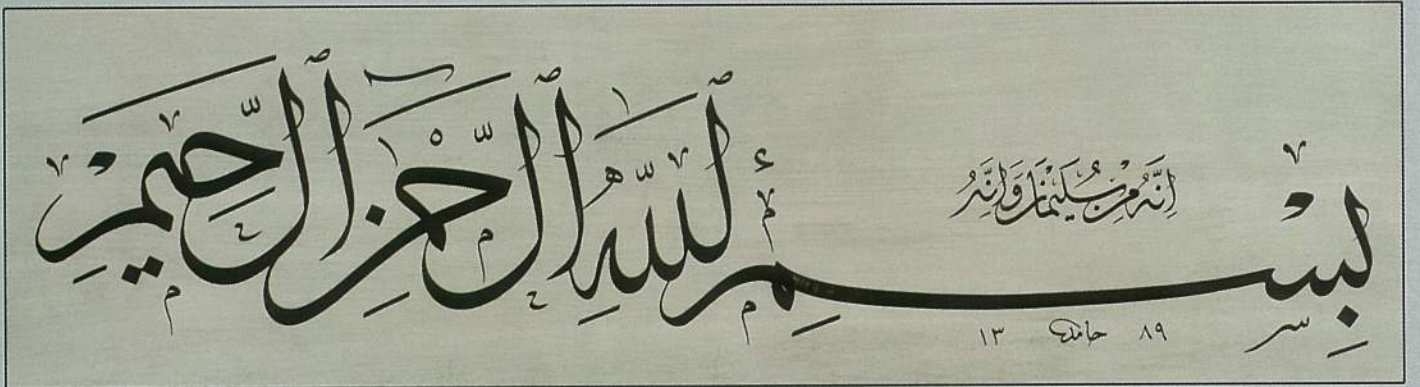 إِنَّهُ مِنْ سُلَيْمَانَ وَإِنَّهُ
بِسْمِ ٱللَّهِ ٱلرَّحْمَٰنِ ٱلرَّحِيمِ
١٣ حامد ٨٩